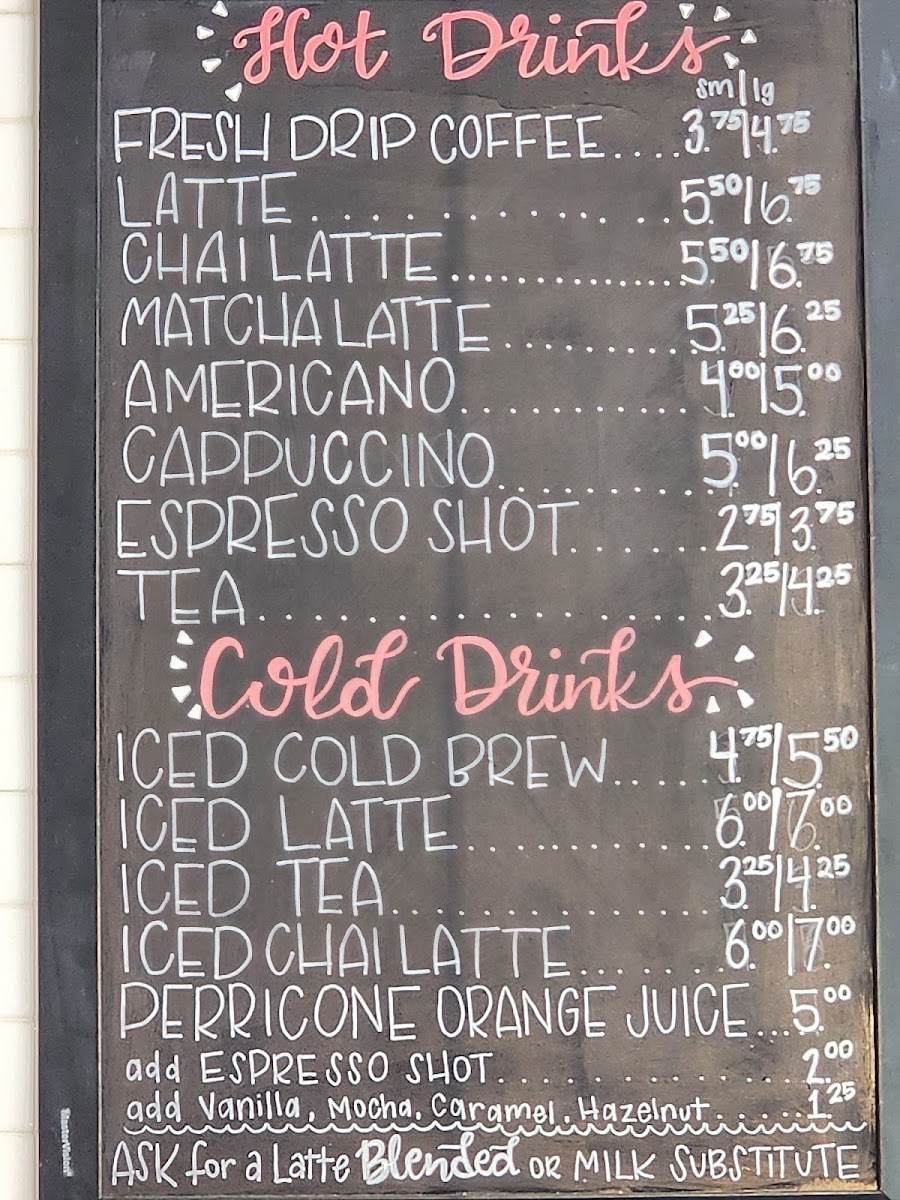 Hot Drinks
sm | lg
FRESH DRIP COFFEE....3.75|4.75
LATTE...............5.50|6.75
CHAI LATTE...............5.50|6.75
MATCHA LATTE...........5.25|6.25
AMERICANO............4.00|5.00
CAPPUCCINO...........5.00|6.25
ESPRESSO SHOT.......2.75|3.75
TEA..................3.25|4.25
Cold Drinks
ICED COLD BREW.....4.75|5.50
ICED LATTE.............6.00|7.00
ICED TEA.............3.25|4.25
ICED CHAI LATTE.......6.00|7.00
PERRICONE ORANGE JUICE...5.00
add ESPRESSO SHOT..............2.00
add Vanilla, Mocha, Caramel, Hazelnut......1.25
ASK for a Latte Blended OR MILK SUBSTITUTE